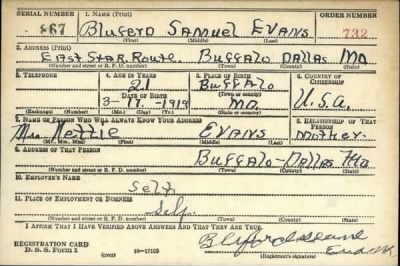 SERIAL NUMBER 1. NAME (Print) ORDER NUMBER
867 Bluford Samuel Evans 732
(First) (Middle) (Last)
2. ADDRESS (Print)
East Star Route. Buffalo Dallas Mo.
(Number and street or R. F. D. number) (Town) (County) (State)
3. TELEPHONE 4. AGE IN YEARS 5. PLACE OF BIRTH 6. COUNTRY OF CITIZENSHIP
21 Buffalo
DATE OF BIRTH (Town or county)
3-17-1919 Mo. U.S.A.
(Exchange) (Number) (Mo.) (Day) (Yr.) (State or country)
7. NAME OF PERSON WHO WILL ALWAYS KNOW YOUR ADDRESS 8. RELATIONSHIP OF THAT PERSON
Mrs. Nettie Evans Mother.
(Mr., Mrs., Miss) (First) (Middle) (Last)
9. ADDRESS OF THAT PERSON
Buffalo-Dallas Mo
(Number and street or R. F. D. number) (Town) (County) (State)
10. EMPLOYER'S NAME
Self.
11. PLACE OF EMPLOYMENT OR BUSINESS
Self.
(Number and street or R. F. D. number) (Town) (County) (State)
I AFFIRM THAT I HAVE VERIFIED ABOVE ANSWERS AND THAT THEY ARE TRUE.
REGISTRATION CARD
D. S. S. Form 1 (over) 16-17105